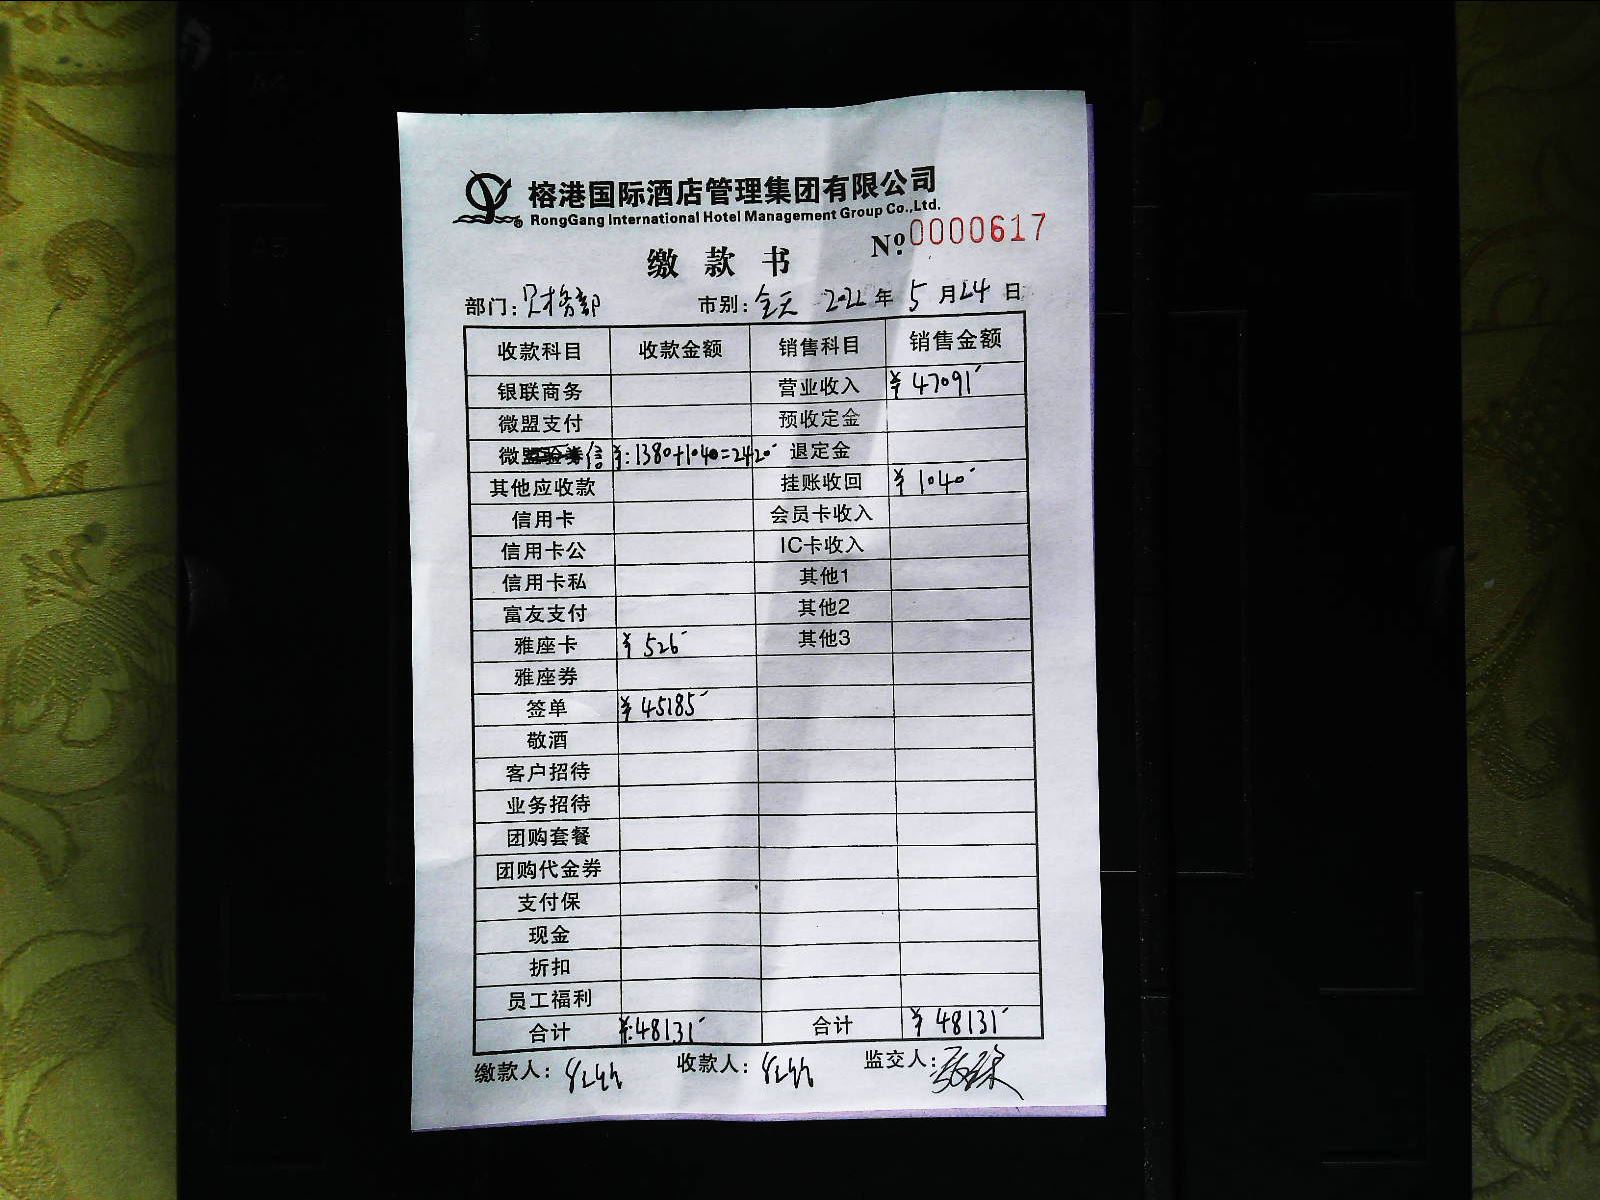 榕港国际酒店管理集团有限公司
RongGang International Hotel Management Group Co.,Ltd.
缴款书 Nº 0000617
部门：财务部 市别：全天 2022年5月24日
收款科目 收款金额 销售科目 销售金额
银联商务 营业收入 ¥47091
微盟支付 预收定金
微信 ¥:1380+1040=2420 退定金
其他应收款 挂账收回 ¥1040
信用卡 会员卡收入
信用卡公 IC卡收入
信用卡私 其他1
富友支付 其他2
雅座卡 ¥526 其他3
雅座券
签单 ¥45185
敬酒
客户招待
业务招待
团购套餐
团购代金券
支付保
现金
折扣
员工福利
合计 ¥:48131 合计 ¥48131
缴款人： 收款人： 监交人：